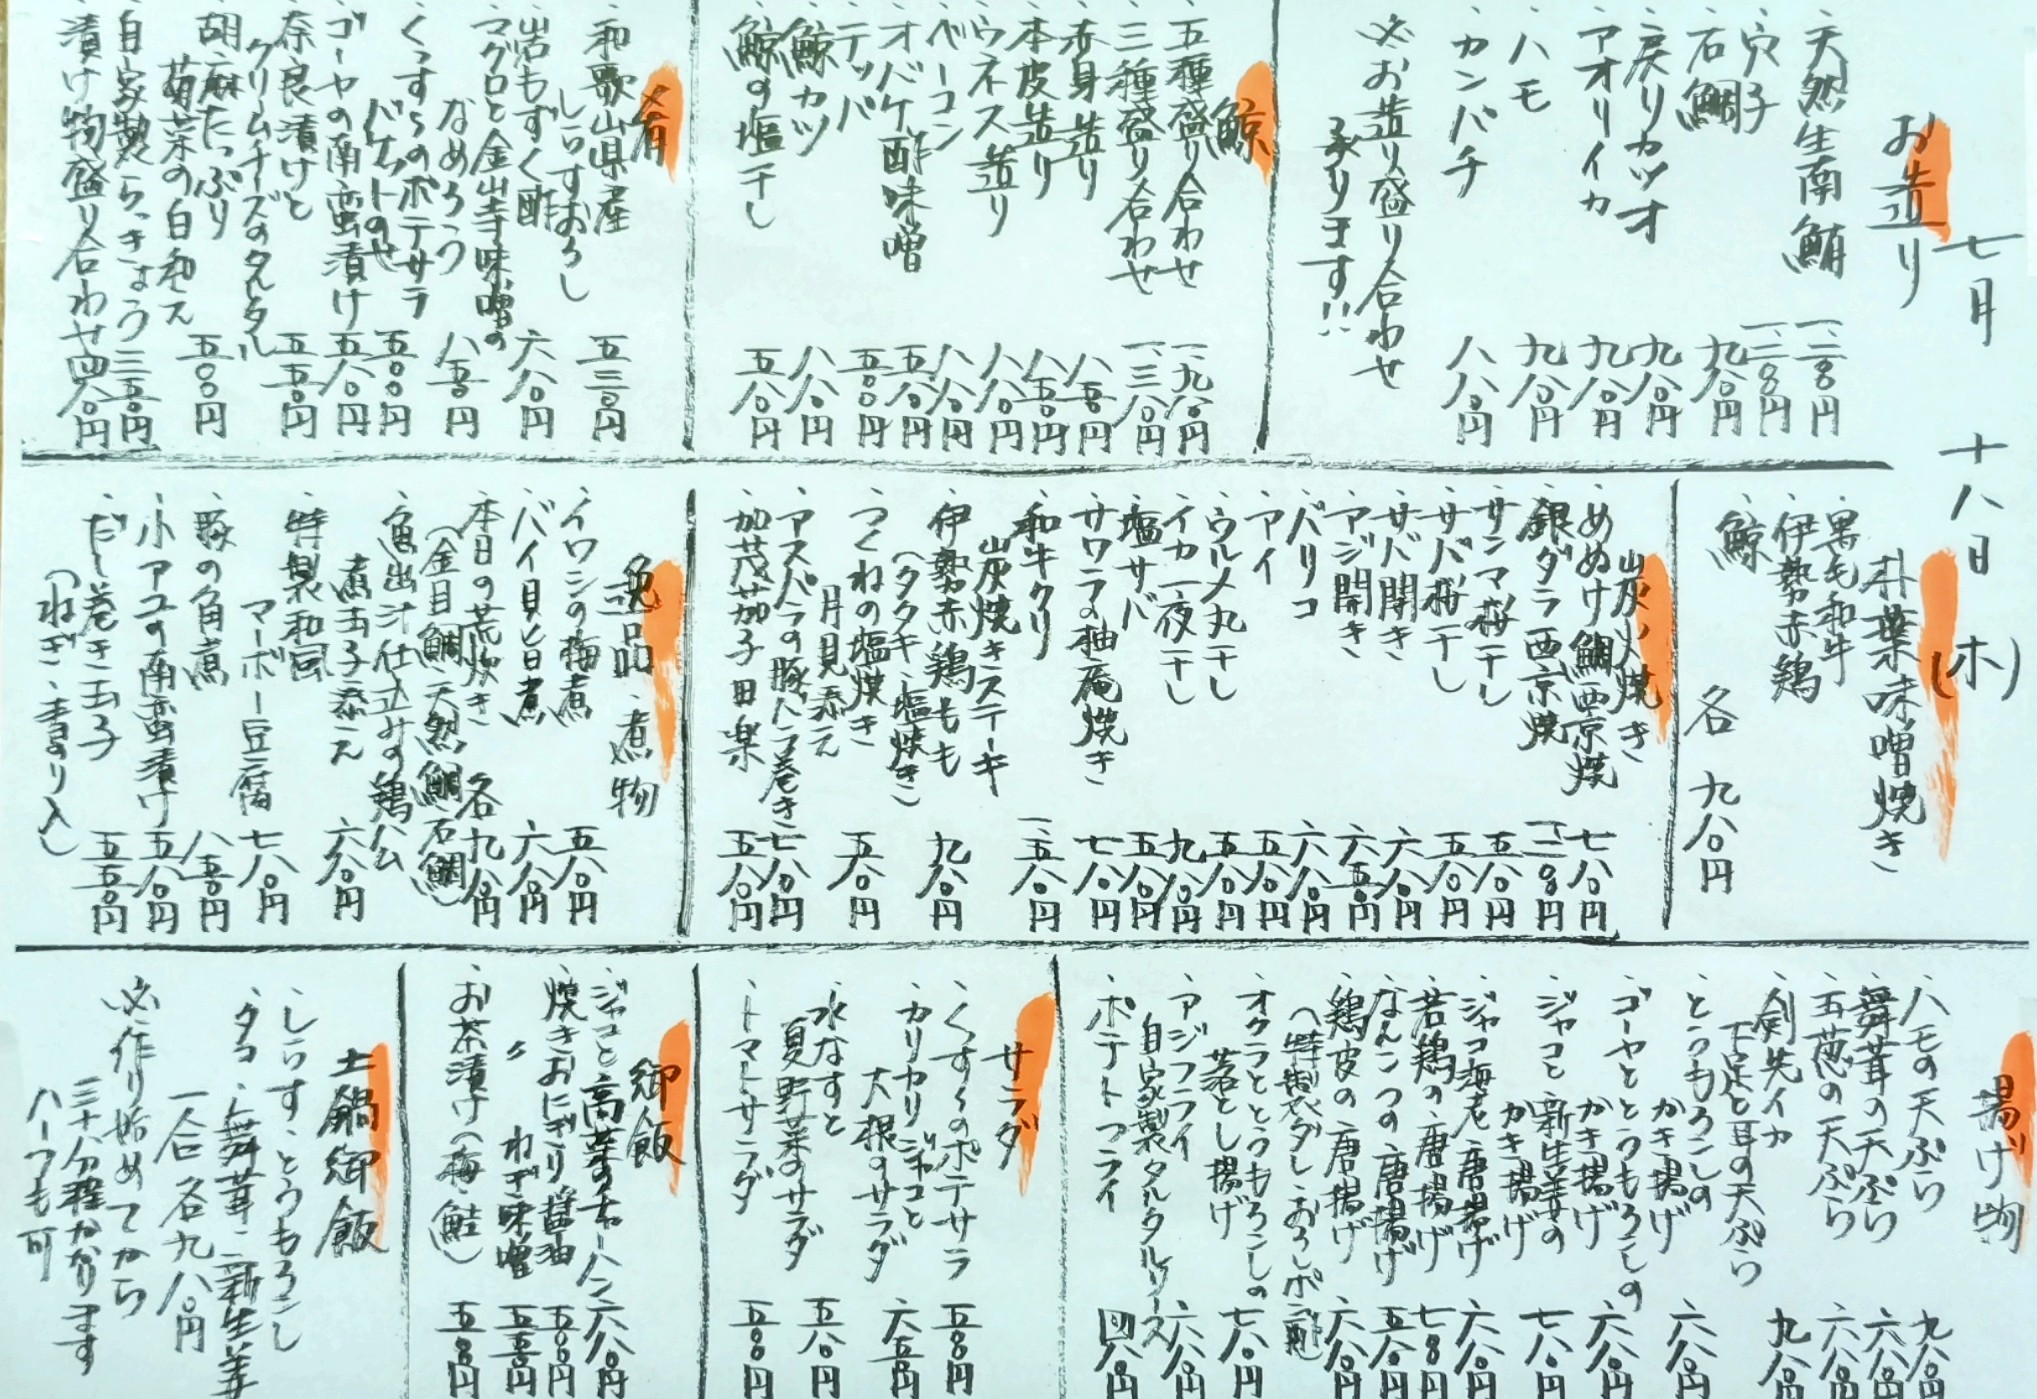 七月 十八日(木)
お造り
・天然生南鮪 一、二八〇円
・穴子 一、二八〇円
・石鯛 九八〇円
・戻りカツオ 九八〇円
・アオリイカ 九八〇円
・ハモ 九八〇円
・カンパチ 八八〇円
※お造り盛り合わせ
承ります!!
鯨
・五種盛り合わせ 一、九八〇円
・三種盛り合わせ 一、三八〇円
・赤身造り 八五〇円
・本皮造り 八五〇円
・ウネス造り 八八〇円
・ベーコン 八八〇円
・オバケ酢味噌 五八〇円
・テッパ 五〇〇円
・鯨カツ 八八〇円
・鯨の塩干し 五八〇円
肴
・和歌山県産
しらすおろし 五三〇円
・岩もずく酢 六八〇円
・マグロと金山寺味噌の
なめろう 八五〇円
・くっすらのポテサラ
バケットのせ 五〇〇円
・ゴーヤの南蛮漬け 五八〇円
・奈良漬けと
クリームチーズのタルタル 五五〇円
・胡麻たっぷり
菊菜の白和え 五〇〇円
・自家製らっきょう 三五〇円
・漬け物盛り合わせ 四八〇円
朴葉味噌焼き
・黒毛和牛
・伊勢赤鶏
・鯨
各 九八〇円
炭火焼き
・めぬけ鯛西京焼 七八〇円
・銀ダラ西京焼 一、二八〇円
・サンマ桜干し 五八〇円
・サバ桜干し 五八〇円
・サバ開き 六八〇円
・アジ開き 六五〇円
・バリコ 六八〇円
・アイ 五八〇円
・ウルメ丸干し 五八〇円
・イカ一夜干し 九八〇円
・塩サバ 五八〇円
・サワラの柚庵焼き 七八〇円
・和牛クリ
炭焼きステーキ 一、五八〇円
・伊勢赤鶏もも
(タタキ・塩焼き) 九八〇円
・つくねの塩焼き
月見添え 五八〇円
・アスパラの豚バラ巻き 七八〇円
・加茂茄子田楽 五八〇円
逸品・煮物
・イワシの梅煮 五八〇円
・バイ貝旨煮 六八〇円
・本日の荒炊き 各九八〇円
(金目鯛・天然鯛・石鯛)
・魚出汁仕立ての鶏ハム
煮玉子添え 六八〇円
・特製和風
マーボー豆腐 七八〇円
・豚の角煮 八五〇円
・小アユの南蛮漬け 五八〇円
・だし巻き玉子 五五〇円
(ねぎ・青のり入)
揚げ物
・ハモの天ぷら 九八〇円
・舞茸の天ぷら 六八〇円
・五葱の天ぷら 六八〇円
・剣先イカ
下足と耳の天ぷら 九八〇円
・とうもろこしの
かき揚げ 六八〇円
・ゴーヤととうもろこしの
かき揚げ 六八〇円
・ジャコと新生姜の
かき揚げ 七八〇円
・ジャコ海老唐揚げ 六八〇円
・若鶏の唐揚げ 七八〇円
・なんこつの唐揚げ 五八〇円
・鶏皮の唐揚げ 六八〇円
(特製衣ダレ・おろしポン酢)
・オクラととうもろこしの
落とし揚げ 七八〇円
・アジフライ
自家製タルタルソース 六八〇円
・ポテトフライ 四八〇円
サラダ
・くっすらのポテサラ 五〇〇円
・カリカリジャコと
大根のサラダ 六五〇円
・水なすと
夏野菜のサラダ 五八〇円
・トマトサラダ 五〇〇円
御飯
・ジャコと高菜のチャーハン 六八〇円
・焼きおにぎり醤油 五〇〇円
・〃 ねぎ味噌 五五〇円
・お茶漬け(梅・鮭) 五五〇円
土鍋御飯
・しらすとうもろこし
・タコ・舞茸・新生姜
一合 各九八〇円
※作り始めてから
三十分程かかります
ハーフも可